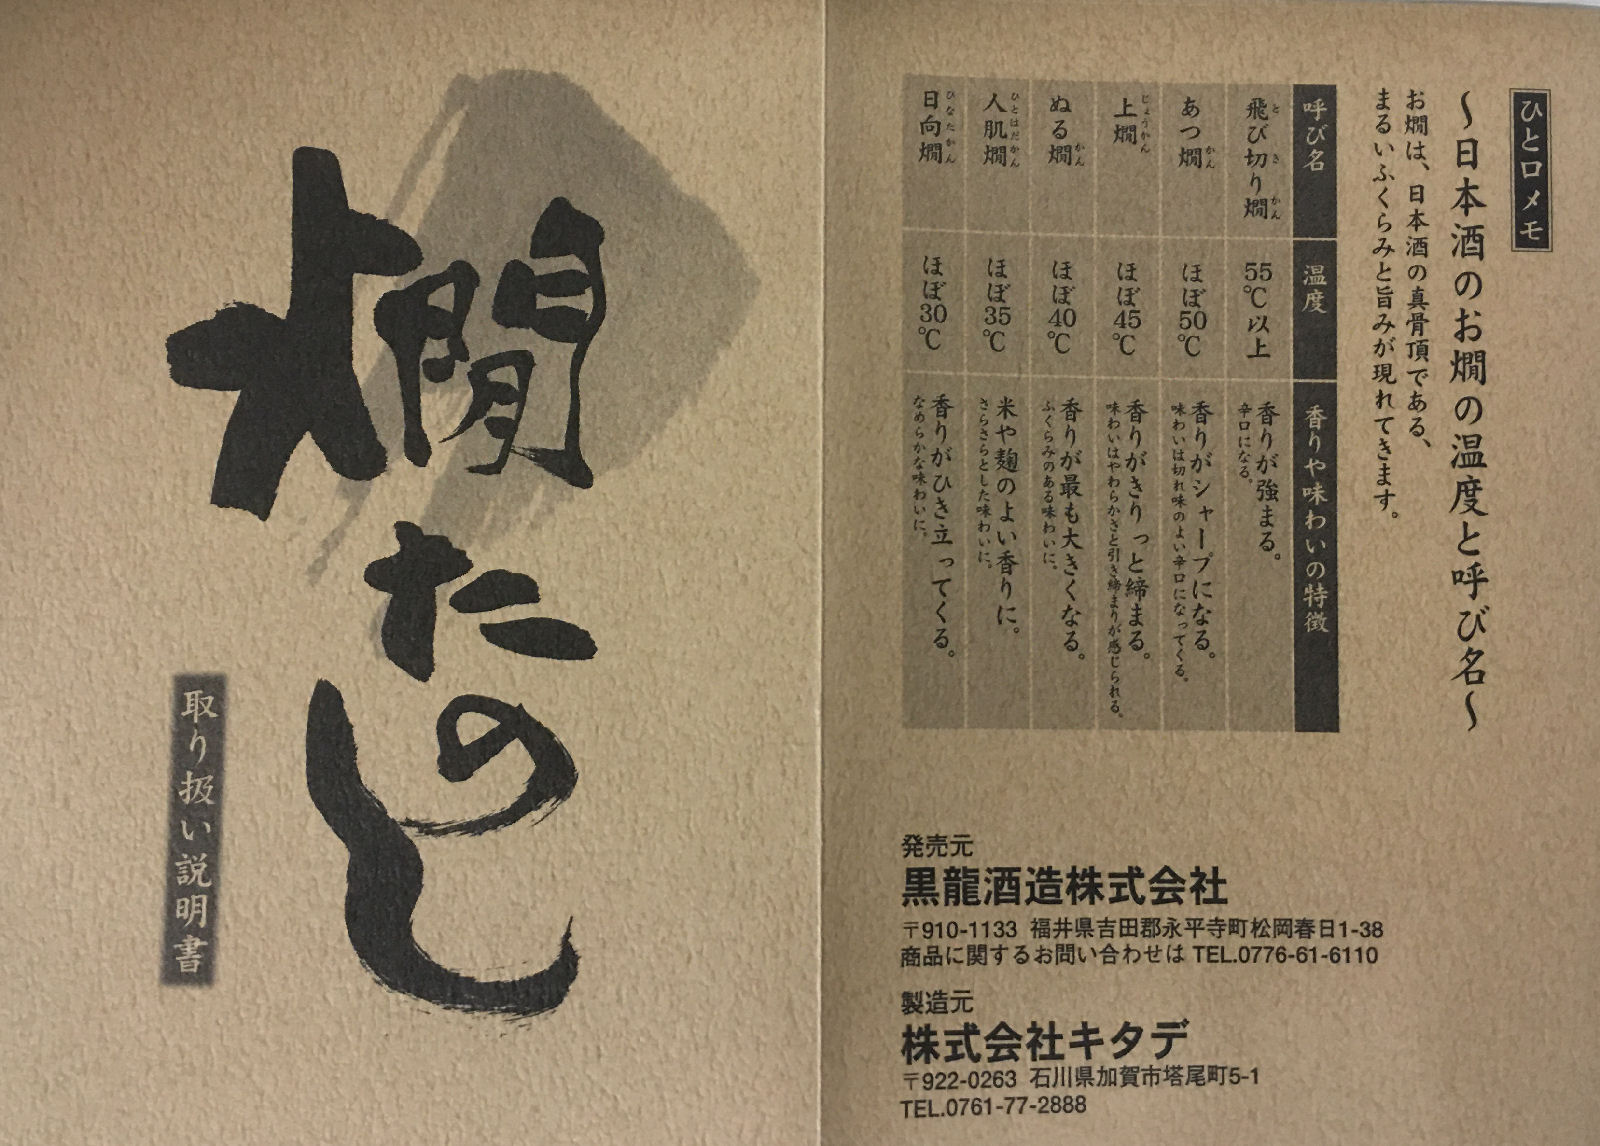 ひと口メモ
～日本酒のお燗の温度と呼び名～
お燗は、日本酒の真骨頂である、
まるいふくらみと旨みが現れてきます。
呼び名 温度 香りや味わいの特徴
飛び切り燗 55℃以上 香りが強まる。
辛口になる。
あつ燗 ほぼ50℃ 香りがシャープになる。
味わいは切れ味のよい辛口になってくる。
上燗 ほぼ45℃ 香りがきりっと締まる。
味わいはやわらかさと引き締まりが感じられる。
ぬる燗 ほぼ40℃ 香りが最も大きくなる。
ふくらみのある味わいに。
人肌燗 ほぼ35℃ 米や麹のよい香りに。
さらさらとした味わいに。
日向燗 ほぼ30℃ 香りがひき立ってくる。
なめらかな味わいに。
発売元
黒龍酒造株式会社
〒910-1133 福井県吉田郡永平寺町松岡春日1-38
商品に関するお問い合わせは TEL.0776-61-6110
製造元
株式会社キタデ
〒922-0263 石川県加賀市塔尾町5-1
TEL.0761-77-2888
燗たのし
取り扱い説明書